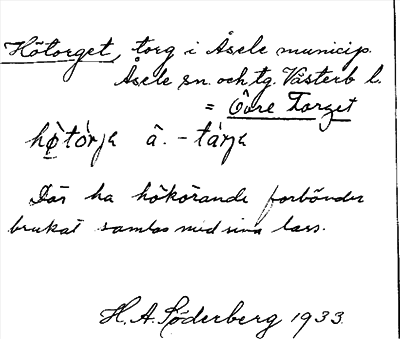 Hötorget, torg i Åsele municip.
Åsele sn. och tg. Västerb l.
= Övre Torget
hø̀tòrja â. - tárja
Där ha hökörande forbönder
brukat samlas med sina lass.
H. A. Söderberg 1933.